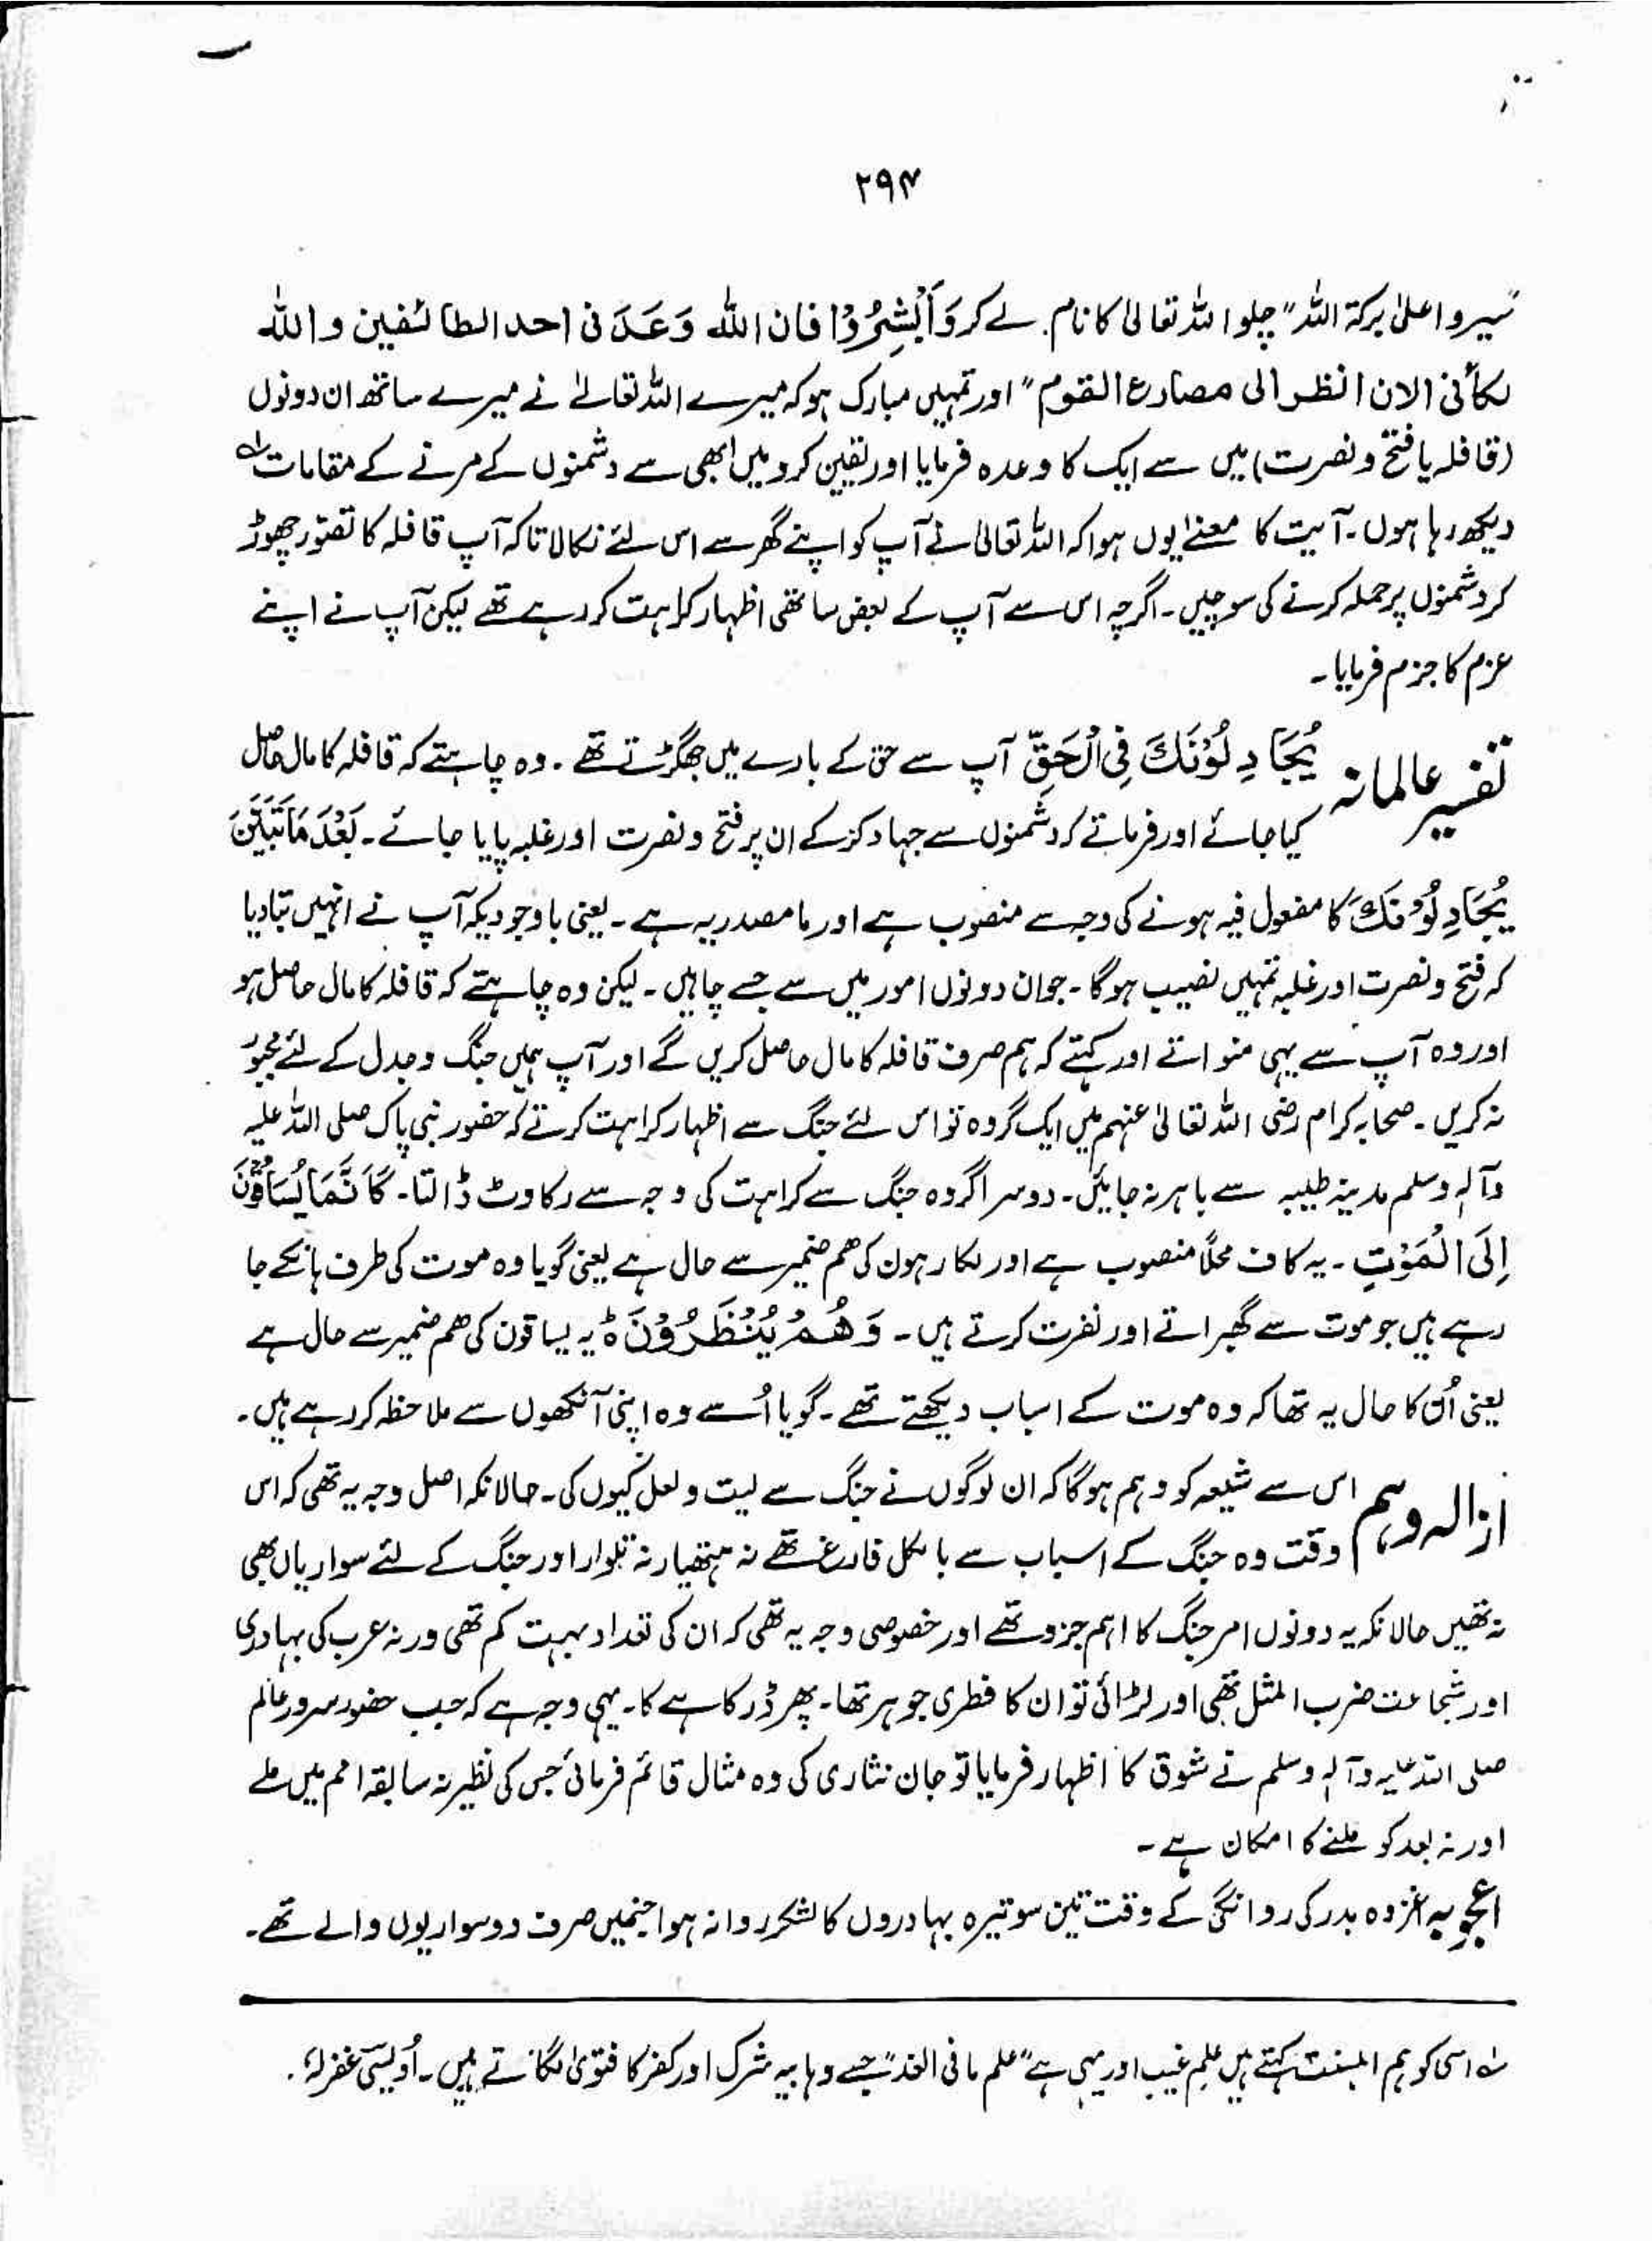 ۲۹۴
"سیروا علیٰ برکۃ اللہ" چلو اللہ تعالیٰ کا نام لے کر وَاَبْشِرُوْا فان اللہ وَعَدَنی احد الطائفین و اللہ
لکأنی الان انظر الی مصارع القوم" اور تمہیں مبارک ہو کہ میرے اللہ تعالےٰ نے میرے ساتھ ان دونوں
(قافلہ یا فتح و نصرت) میں سے ایک کا وعدہ فرمایا اور یقین کرو میں ابھی سے دشمنوں کے مرنے کے مقامات لہ
دیکھ رہا ہوں۔ آیت کا معنےٰ یوں ہوا کہ اللہ تعالیٰ نے آپ کو اپنے گھر سے اس لئے نکالا تاکہ آپ قافلہ کا تصوّر چھوڑ
کر دشمنوں پر حملہ کرنے کی سوچیں۔ اگرچہ اس سے آپ کے بعض ساتھی اظہار کراہت کر رہے تھے لیکن آپ نے اپنے
عزم کا جزم فرمایا۔
تفسیر عالمانہ یُجَادِلُوْنَكَ فِی الْحَقِّ آپ سے حق کے بارے میں جھگڑتے تھے۔ وہ چاہتے کہ قافلہ کا مال حاصل
کیا جائے اور فرماتے کہ دشمنوں سے جہاد کرکے ان پر فتح و نصرت اور غلبہ پایا جائے۔ بَعْدَ مَا تَبَیَّنَ
یُجَادِلُوْنَكَ کا مفعول فیہ ہونے کی وجہ سے منصوب ہے اور ما مصدریہ ہے۔ یعنی باوجودیکہ آپ نے انہیں بتا دیا
کہ فتح و نصرت اور غلبہ تمہیں نصیب ہوگا۔ جو ان دونوں امور میں سے جسے چاہیں۔ لیکن وہ چاہتے کہ قافلہ کا مال حاصل ہو
اور وہ آپ سے یہی منواتے اور کہتے کہ ہم صرف قافلہ کا مال حاصل کریں گے اور آپ ہمیں جنگ و جدل کے لئے مجبور
نہ کریں۔ صحابہ کرام رضی اللہ تعالیٰ عنہم میں ایک گروہ تو اس لئے جنگ سے اظہار کراہت کرتے کہ حضور نبی پاک صلی اللہ علیہ
وآلہٖ وسلم مدینہ طیبہ سے باہر نہ جائیں۔ دوسرا گروہ جنگ سے کراہت کی وجہ سے رکاوٹ ڈالتا۔ کَاَنَّمَا یُسَاقُوْنَ
اِلَی الْمَوْتِ۔ یہ کاف محلاً منصوب ہے اور لکارہون کی ھم ضمیر سے حال ہے یعنی گویا وہ موت کی طرف ہانکے جا
رہے ہیں جو موت سے گھبراتے اور نفرت کرتے ہیں۔ وَھُمْ یَنْظُرُوْنَ ہ یہ یساقون کی ھم ضمیر سے حال ہے
یعنی اُن کا حال یہ تھا کہ وہ موت کے اسباب دیکھتے تھے۔ گویا اُسے وہ اپنی آنکھوں سے ملاحظہ کر رہے ہیں۔
ازالہ وہم اس سے شیعہ کو وہم ہوگا کہ ان لوگوں نے جنگ سے لیت و لعل کیوں کی۔ حالانکہ اصل وجہ یہ تھی کہ اس
وقت وہ جنگ کے اسباب سے بالکل فارغ تھے نہ ہتھیار نہ تلوار اور جنگ کے لئے سواریاں بھی
نہ تھیں حالانکہ یہ دونوں امر جنگ کا اہم جزو تھے اور خصوصی وجہ یہ تھی کہ ان کی تعداد بہت کم تھی ورنہ عرب کی بہادری
اور شجاعت ضرب المثل تھی اور لڑائی تو ان کا فطری جوہر تھا۔ پھر ڈر کاہے کا۔ یہی وجہ ہے کہ جب حضور سرور عالم
صلی اللہ علیہ وآلہٖ وسلم نے شوق کا اظہار فرمایا تو جان نثاری کی وہ مثال قائم فرمائی جس کی نظیر نہ سابقہ امم میں ملے
اور نہ بعد کو ملنے کا امکان ہے۔
اعجوبہ غزوہ بدر کی روانگی کے وقت تین سو تیرہ بہادروں کا لشکر روانہ ہوا جنمیں صرف دو سواریوں والے تھے۔
لہ اسی کو ہم اہلسنت کہتے ہیں علمِ غیب اور یہی ہے "علم مافی الغد" جسے وہابیہ شرک اور کفر کا فتویٰ لگاتے ہیں۔ اُویسی غفرلہٗ۔